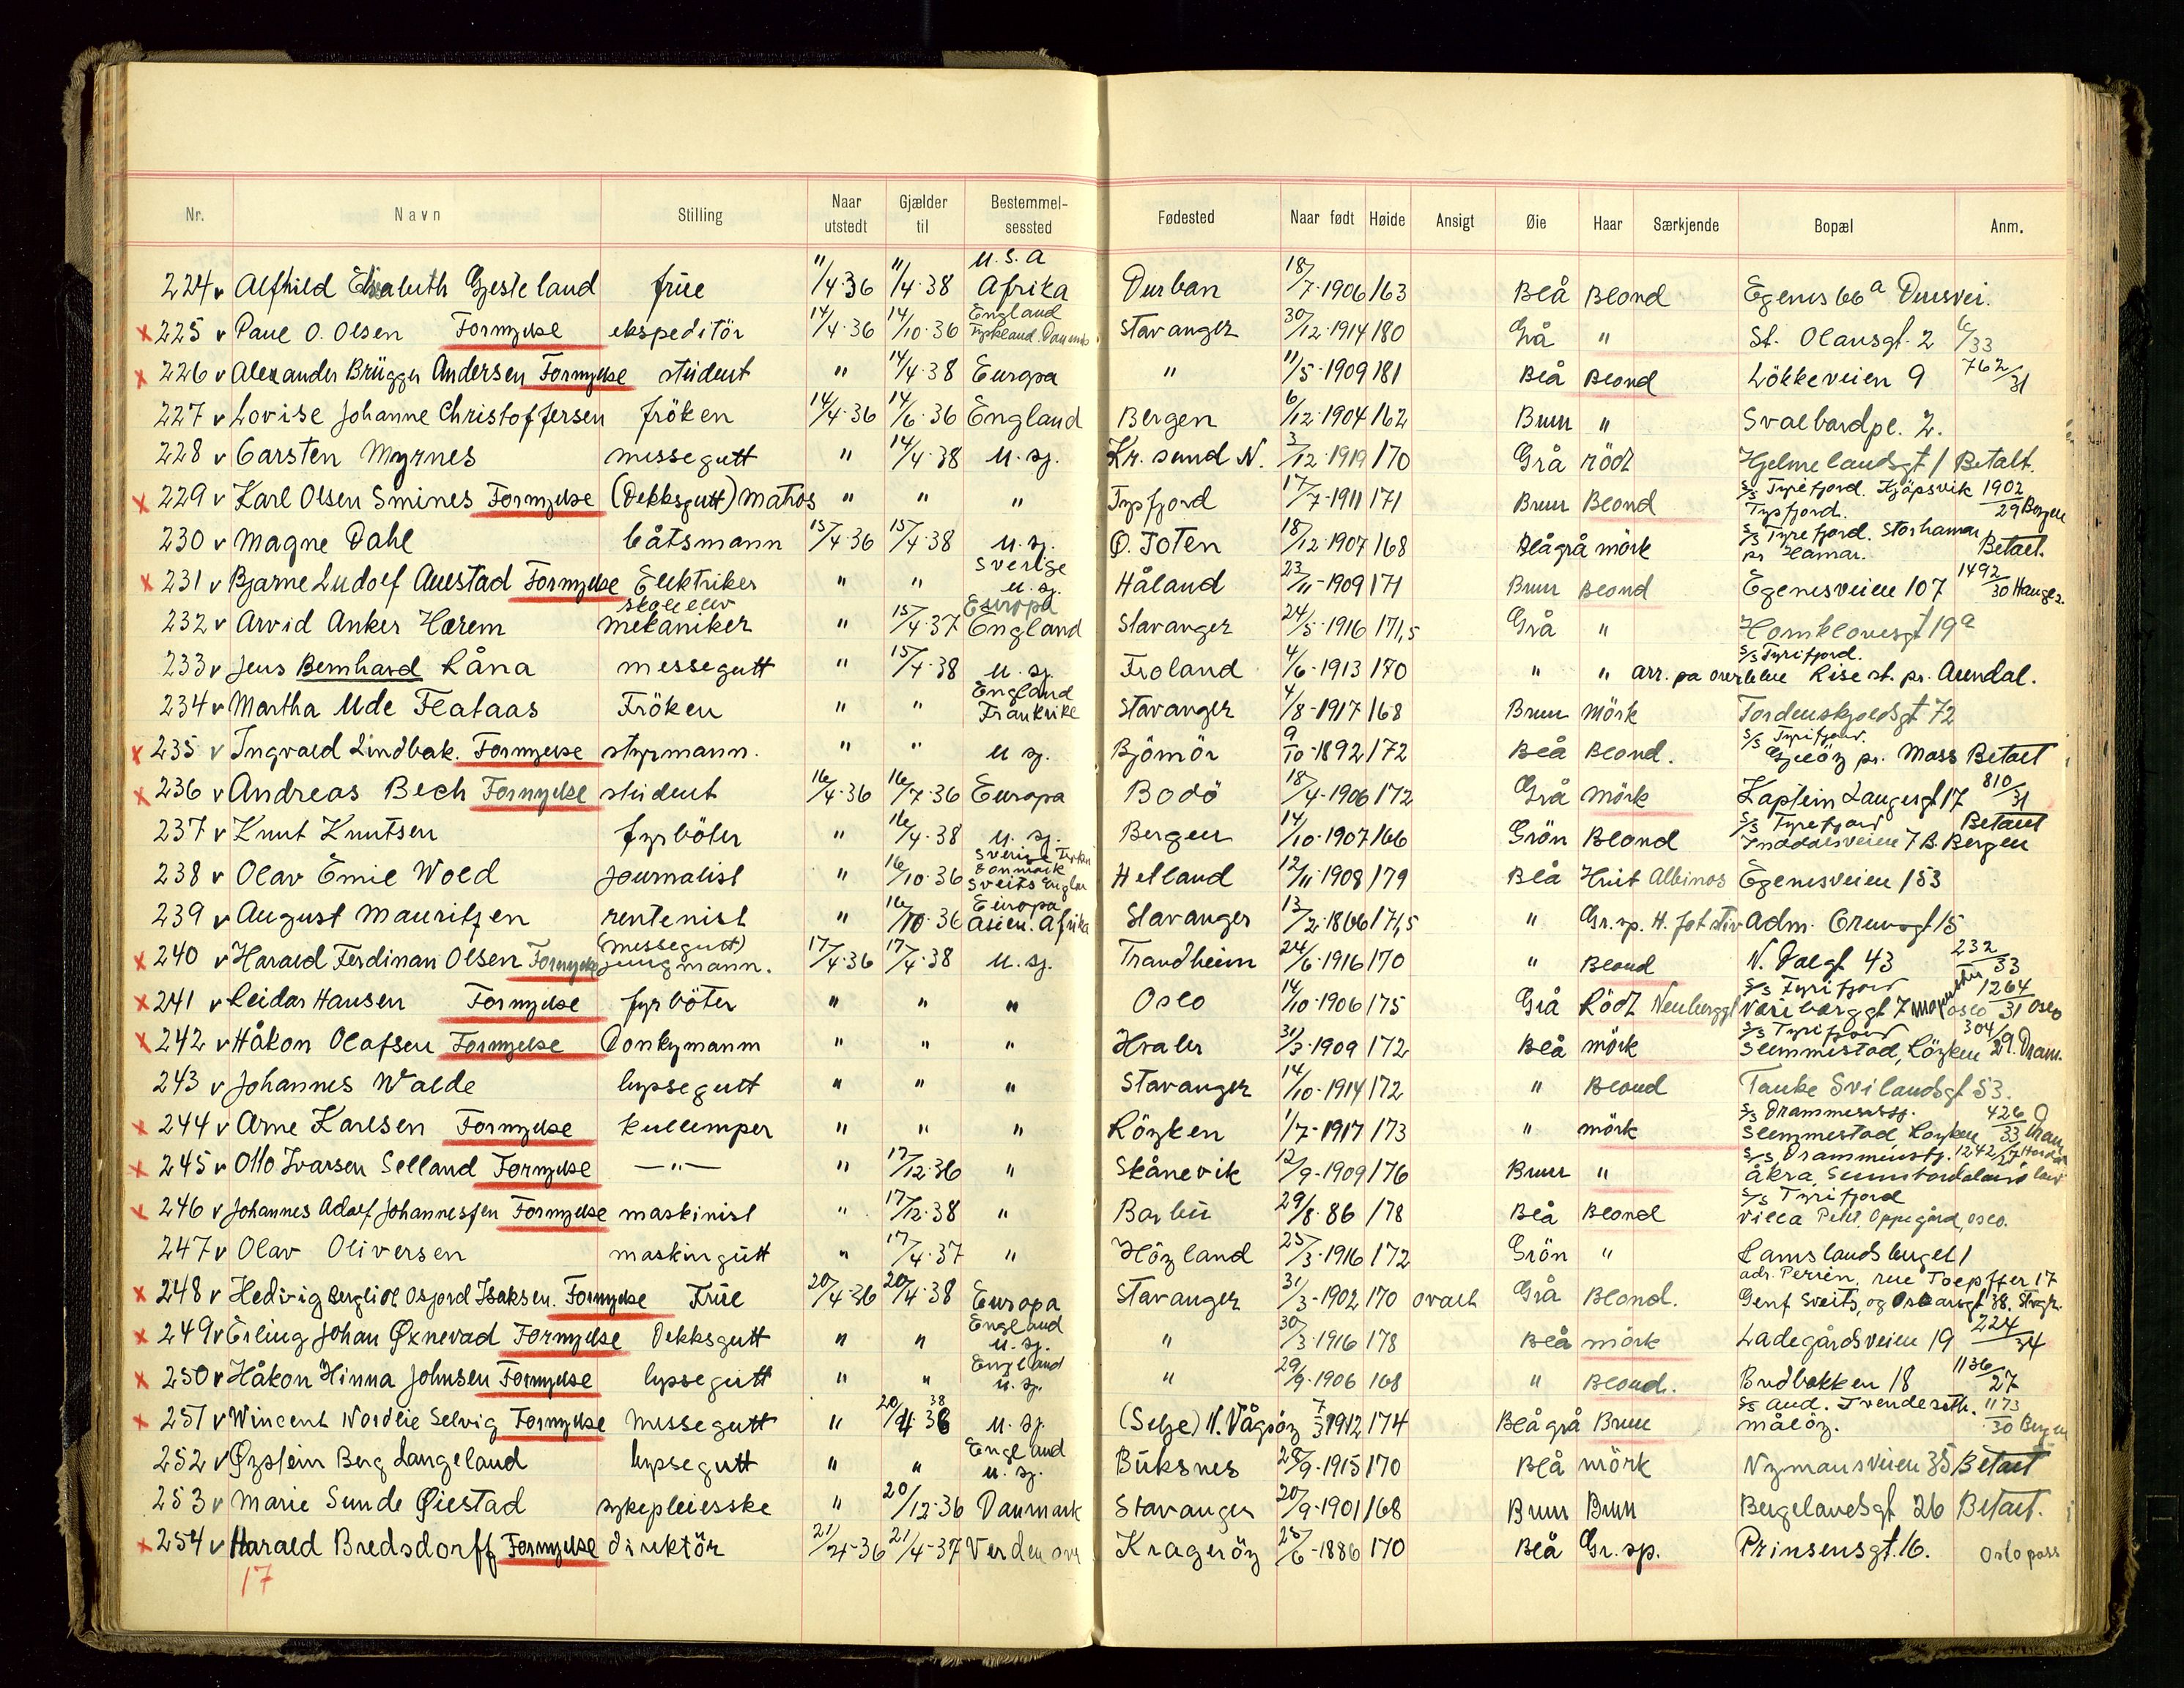 Nr. Navn Stilling Naar utstedt Gjælder til Bestemmel-sessted Fødested Naar født Høide Ansigt Øie Haar Særkjende Bopæl Anm.
224 v Alfhild Elisabeth Gjesteland frue 11/4-36 11/4-38 U.S.A Afrika Durban 18/7-1906 163 Blå Blond Egenes 66a Duesvei.
x 225 v Paul O. Olsen Fornyelse ekspeditör 14/4-36 14/10-36 England Tyskland. Danmark Stavanger 30/12-1914 180 Grå " St. Olavsgt. 2 6/33
x 226 v Alexander Brügger Andersen Fornyelse student " 14/4-38 Europa " 11/5-1909 181 Blå Blond Lökkeveien 9 762/31
227 v Lovise Johanne Christoffersen fröken 14/4-36 14/6-36 England Bergen 6/12-1904 162 Brun " Svalbardpl. 2.
228 v Carsten Myrnes messegutt " 14/4-38 u. sj. Kr. sund N. 3/12-1919 170 Grå rödt Hjelmelandsgt 1 Betalt.
x 229 v Karl Olsen Smines Fornyelse (Dekksgutt) Matros " " " Tysfjord 17/7-1911 171 Brun Blond S/S Tyrifjord. Kjöpsvik Tysfjord. 1902/29 Bergen
230 v Magne Dahl båtsmann 15/4-36 15/4-38 u. sj. Ö. Toten 18/12-1907 168 Blågrå mörk S/S Tyrefjord. Storhamar pr Hamar. Betalt.
x 231 v Bjarne Ludolf Auestad Fornyelse Elektriker " " Sverige u. sj. Håland 23/11-1909 171 Brun Blond Egenesveien 107 1492/30 Hauges.
232 v Arvid Anker Hærem skoleelev mekaniker " 15/4-37 Europa England Stavanger 24/5-1916 171,5 Grå " Hornklovesgt 19a
233 v Jens Bernhard Råna messegutt " 15/4-38 u. sj. Froland 4/6-1913 170 " " arr. på overlebe S/S Tyrifjord. Rise st. pr. Arendal.
234 v Martha Ude Flataas Fröken " " England Frankrike Stavanger 4/8-1917 168 Brun Mörk Tordenskjoldsgt 72
x 235 v Ingvald Lindbak. Fornyelse styrmann. " " u sj. Bjömör 9/10-1892 172 Blå Blond. S/S Tyrifjord. Gjelöy pr. Moss Betalt
x 236 v Andreas Bech Fornyelse student 16/4-36 16/7-36 Europa Bodö 18/4-1906 172 Grå Mörk Kaptein Langesgt 17 810/31
237 v Knut Knutsen fyrböter " 16/4-38 u. sj. Bergen 14/10-1907 166 Grön Blond S/S Tyrefjord 7 B. Bergen Betalt
238 v Olav Emil Wold journalist " 16/10-36 Sverige Danmark Sveits England Hetland 12/11-1908 179 Blå Hvit Albinos Egenesveien 153
239 v August Mauritzen rentenist " 16/10-36 Europa Asien. Afrika Stavanger 13/2-1866 171,5 " Gr.sp. Adm. Cruysgt 15
x 240 v Harald Ferdinan Olsen Fornyelse (messegutt) jungmann. 17/4-36 17/4-38 u. sj. Trondheim 24/6-1916 170 " Blond N. Dalgt 43 232/33
x 241 v Reidar Hansen Fornyelse fyrböter " " " Oslo 14/10-1906 175 Grå Rödt Neuberggt S/S Tyrifjord 7 oslo 1264/31 oslo
x 242 v Håkon Olafsen Fornyelse Donkymann " " " Hvaler 31/3-1909 172 Blå mörk S/S Tyrifjord Slemmestad, Röyken 304/29. Dram.
243 v Johannes Walde byssegutt " " " Stavanger 14/10-1914 172 " Blond Tanke Svilandsgt 53.
x 244 v Arne Karlsen Fornyelse kullemper " " " Röyken 1/7-1917 173 " mörk S/S Drammensfj. Slemmestad Royken 426/33 Dram.
x 245 v Otto Ivarsen Selland Fornyelse —"— " 17/12-36 " Skånevik 12/9-1909 176 Brun " S/S Drammensfj. åkra, 1242/27
x 246 v Johannes Adolf Johannesjen Fornyelse maskinist " 17/12-38 " Barbu 29/8-86 178 Blå Blond S/S Tyrifjord Villa Oppegård, oslo.
247 v Olav Oliversen maskingutt " 17/4-37 " Höyland 25/3-1916 172 Grön " Ramslandsberget 1
x 248 v Hedvig Bergliot Osfjord Isaksen. Fornyelse Frue 20/4-36 20/4-38 Europa Stavanger 31/3-1902 170 ovalt Grå Blond. adr. Perrin, rue Toepffer 17 Genf Sveits, og Oscarsgt 38. Stvgr.
x 249 v Erling Johan Øxnevad Fornyelse Dekksgutt " " England u. sj. " 30/3-1916 178 Blå mörk Ladegårdsveien 19 224/34
x 250 v Håkon Hinna Johnsen Fornyelse byssegutt " " England u. sj. " 29/9-1906 168 " Blond. Brudbakken 18 1136/27
x 251 v Wincent Nordlie Selvig Fornyelse Messegutt " 20/4-38 38 u. sj. (Selje) N. Vågsöy 7/3-1912 174 Blågrå Brun målöy. 1173/30 Bergen
252 v Øystein Berg Langeland byssegutt " " England u. sj. Buksnes 28/9-1915 170 Blå mörk Nymansveien 35 Betalt
253 v Marie Sunde Øiestad sykepleieske " 20/12-36 Danmark Stavanger 20/9-1901 168 Brun Brun Bergelandsgt 26 Betalt.
x 254 v Harald Bredsdorff Fornyelse direktör 21/4-36 21/4-37 Verden over Krageröy 25/6-1886 170 Blå Gr. sp. Prinsensgt. 16. Oslo pass
17